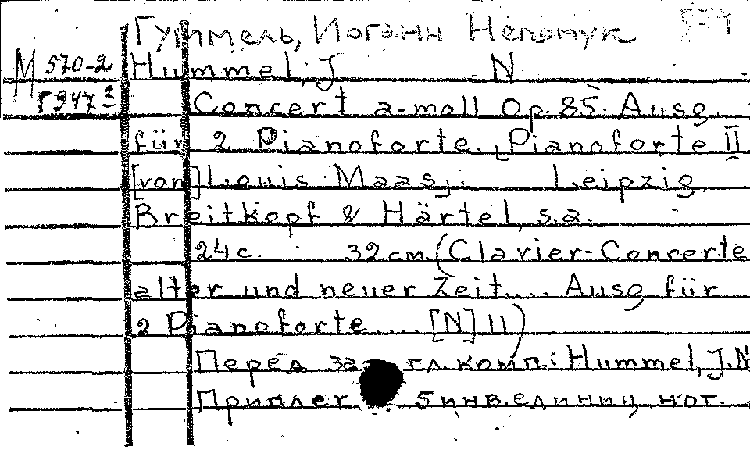 Гуммель, Иоганн Непомук
М 570-2 Hummel, J. N
Г 947 3 Concert a-moll Op. 85. Ausg.
für 2 Pianoforte. Pianoforte II
[von] Louis Maas]. Leipzig,
Breitkopf & Härtel, s.a.
24 с. 32 см. (Clavier-Concerte
alter und neuer Zeit... Ausg für
2 Pianoforte.... [N] 11)
Перед заг. гл. комп.: Hummel, J.N
Приплет 5 инв. единиц нот.